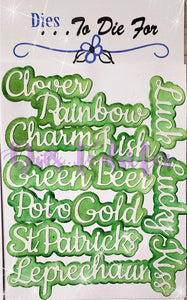 Dies
...To Die For
Clover
Rainbow
Charm Irish
Green Beer
Pot o Gold
St. Patricks
Leprechaun
Luck
Lucky
Kiss